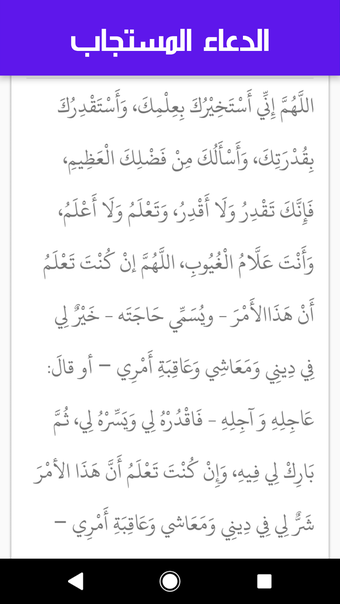 الدعاء المستجاب
اللَّهُمَّ إِنِّي أَسْتَخِيْرُكَ بِعِلْمِكَ، وَأَسْتَقْدِرُكَ
بِقُدْرَتِكَ، وَأَسْأَلُكَ مِنْ فَضْلِكَ الْعَظِيمِ،
فَإِنَّكَ تَقْدِرُ وَلَا أَقْدِرُ، وَتَعْلَمُ وَلَا أَعْلَمُ،
وَأَنْتَ عَلَّامُ الْغُيُوبِ، اللَّهُمَّ إنْ كُنْتَ تَعْلَمُ
أَنْ هَذَاالأَمْرَ - ويُسَمِّي حَاجَتَه - خَيْرٌ لِي
فِي دِينِي وَمَعَاشِي وَعَاقِبَةِ أَمْرِي – أو قالَ:
عَاجِلِهِ وَآجِلِهِ - فَاقْدُرْهُ لِي وَيَسِّرْهُ لِي، ثُمَّ
بَارِكْ لِي فِيهِ، وَإِنْ كُنْتَ تَعْلَمُ أَنَّ هَذَا الأمْرَ
شَرٌّ لِي فِي دِينِي وَمَعَاشي وَعَاقِبَةِ أَمْرِي –